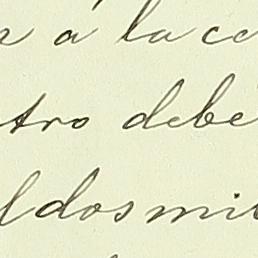 a la ce
tro debe
ldos mil